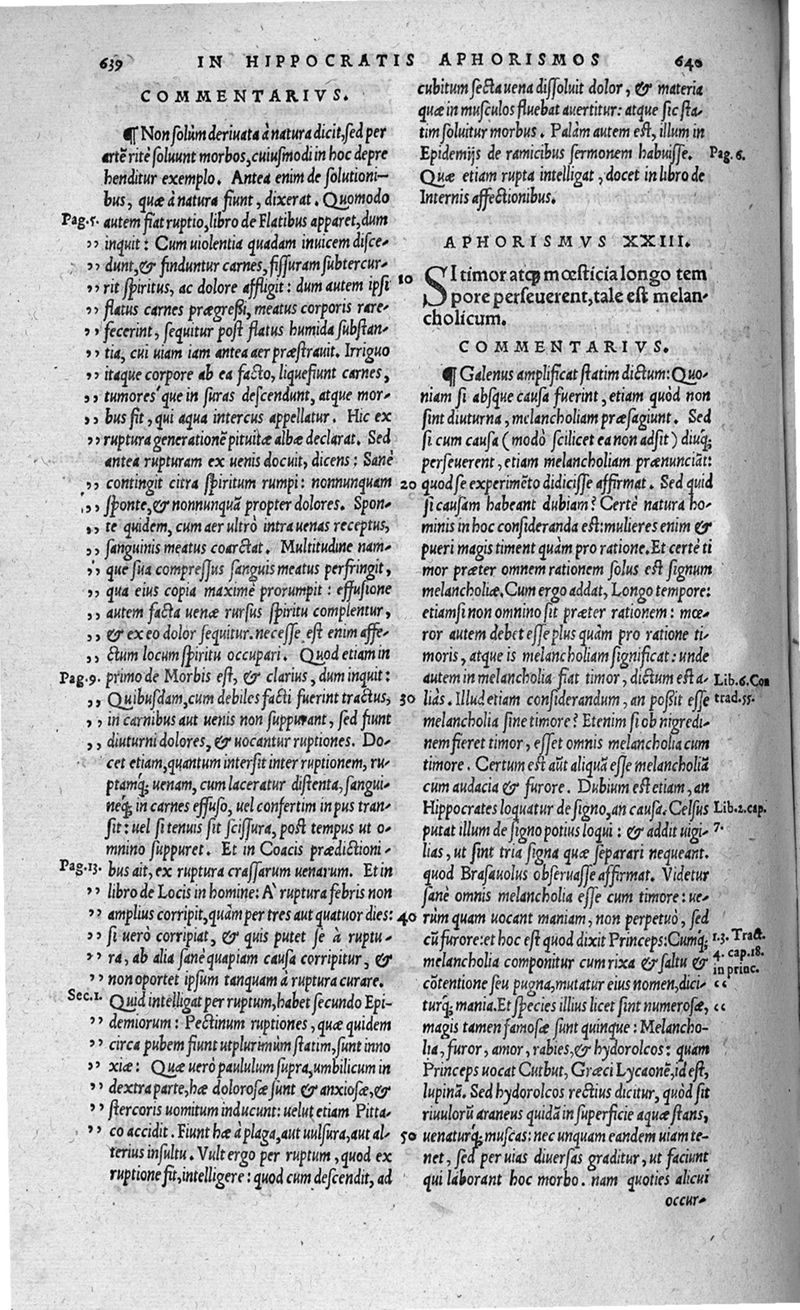 639 IN HIPPOCRATIS APHORISMOS 640
COMMENTARIVS.
¶ Non solùm deriuata à natura dicit, sed per
artẽ ritè soluunt morbos, cuiusmodi in hoc depre
henditur exemplo. Antea enim de solutioni-
bus, quæ à natura fiunt, dixerat. Quomodo
Pag. 5. autem fiat ruptio, libro de Flatibus apparet, dum
,, inquit: Cum uiolentia quadam inuicem disce-
,, dunt, & finduntur carnes, fissuram subtercur-
,, rit spiritus, ac dolore affligit: dum autem ipsi
,, flatus carnes prægreßi, meatus corporis rare-
,, fecerint, sequitur post flatus humida substan-
,, tia, cui uiam iam antea aer præstrauit. Irriguo
,, itaque corpore ab ea facto, liquefiunt carnes,
,, tumores'que in suras descendunt, atque mor-
,, bus fit, qui aqua intercus appellatur. Hic ex
,, ruptura generationẽ pituitæ albæ declarat. Sed
antea rupturam ex uenis docuit, dicens: Sanè
,, contingit citra spiritum rumpi: nonnunquam
,, sponte, & nonnunquã propter dolores. Spon-
,, te quidem, cum aer ultrò intra uenas receptus,
,, sanguinis meatus coarctat. Multitudine nam-
,, que sua compressus sanguis meatus perfringit,
,, qua eius copia maximè prorumpit: effusione
,, autem facta uenæ rursus spiritu complentur,
,, & ex eo dolor sequitur. necesse est enim affe-
,, ctum locum spiritu occupari. Quod etiam in
Pag. 9. primo de Morbis est, & clarius, dum inquit:
,, Quibusdam, cum debiles facti fuerint tractus,
,, in carnibus aut uenis non suppurant, sed fiunt
,, diuturni dolores, & uocantur ruptiones. Do-
cet etiam, quantum intersit inter ruptionem, ru-
ptamq́; uenam, cum laceratur distenta, sangui-
neq́; in carnes effuso, uel confertim in pus tran-
sit: uel si tenuis sit scissura, post tempus ut o-
mnino suppuret. Et in Coacis prædictioni-
Pag. 13. bus ait, ex ruptura crassarum uenarum. Et in
,, libro de Locis in homine: A' ruptura febris non
,, amplius corripit, quàm per tres aut quatuor dies:
,, si uerò corripiat, & quis putet se à ruptu-
,, ra, ab alia sanè quapiam causa corripitur, &
,, non oportet ipsum tanquam à ruptura curare.
Sec. 1. Quid intelligat per ruptum, habet secundo Epi-
,, demiorum: Pectinum ruptiones, quæ quidem
,, circa pubem fiunt utplurimùm statim, sunt inno
,, xiæ: Quæ uerò paululum supra, umbilicum in
,, dextra parte, hæ dolorosæ sunt & anxiosæ, &
,, stercoris uomitum inducunt: uelut etiam Pitta-
,, co accidit. Fiunt hæ à plaga, aut uulsura, aut al-
terius insultu. Vult ergo per ruptum, quod ex
ruptione fit, intelligere: quod cum descendit, ad
cubitum secta uena dissoluit dolor, & materia
quæ in musculos fluebat auertitur: atque sic sta-
tim soluitur morbus. Palàm autem est, illum in
Epidemijs de ramicibus sermonem habuisse. Pag. 6.
Quæ etiam rupta intelligat, docet in libro de
Internis affectionibus.
APHORISMVS XXIII.
10 SI timor atq; mœsticia longo tem
pore perseuerent, tale est melan-
cholicum.
COMMENTARIVS.
¶ Galenus amplificat statim dictum: Quo-
niam si absque causa fuerint, etiam quòd non
sint diuturna, melancholiam præsagiunt. Sed
si cum causa (modò scilicet ea non adsit) diuq́;
perseuerent, etiam melancholiam prænunciãt:
20 quod se experimẽto didicisse affirmat. Sed quid
si causam habeant dubiam? Certè natura ho-
minis in hoc consideranda est: mulieres enim &
pueri magis timent quàm pro ratione. Et certè ti
mor præter omnem rationem solus est signum
melancholiæ. Cum ergo addat, Longo tempore:
etiamsi non omnino sit præter rationem: mœ-
ror autem debet esse plus quàm pro ratione ti-
moris, atque is melancholiam significat: unde
autem in melancholia fiat timor, dictum est a- Lib. 6. Con
30 liàs. Illud etiam considerandum, an poßit esse trad. 55.
melancholia sine timore? Etenim si ob nigredi-
nem fieret timor, esset omnis melancholia cum
timore. Certum est aũt aliquã esse melancholiã
cum audacia & furore. Dubium est etiam, an
Hippocrates loquatur de signo, an causa. Celsus Lib. 2. cap.
putat illum de signo potius loqui: & addit uigi- 7.
lias, ut sint tria signa quæ separari nequeant.
quod Brasauolus obseruasse affirmat. Videtur
sanè omnis melancholia esse cum timore: ue-
40 rùm quam uocant maniam, non perpetuò, sed
cũ furore: et hoc est quod dixit Princeps: Cumq́; 1. 3. Tract.
melancholia componitur cum rixa & saltu & 4. cap. 18.
in princ.
cõtentione seu pugna, mutatur eius nomen, dici- ‘‘
turq́; mania. Et species illius licet sint numerosæ, ‘‘
magis tamen famosæ sunt quinque: Melancho-
lia, furor, amor, rabies, & hydorolcos: quam
Princeps uocat Cutbut, Græci Lycaonẽ, id est,
lupinã. Sed hydorolcos rectius dicitur, quòd sit
riuulorũ araneus quidã in superficie aquæ stans,
50 uenaturq́; muscas: nec unquam eandem uiam te-
net, sed per uias diuersas graditur, ut faciunt
qui laborant hoc morbo. nam quoties alicui
occur-